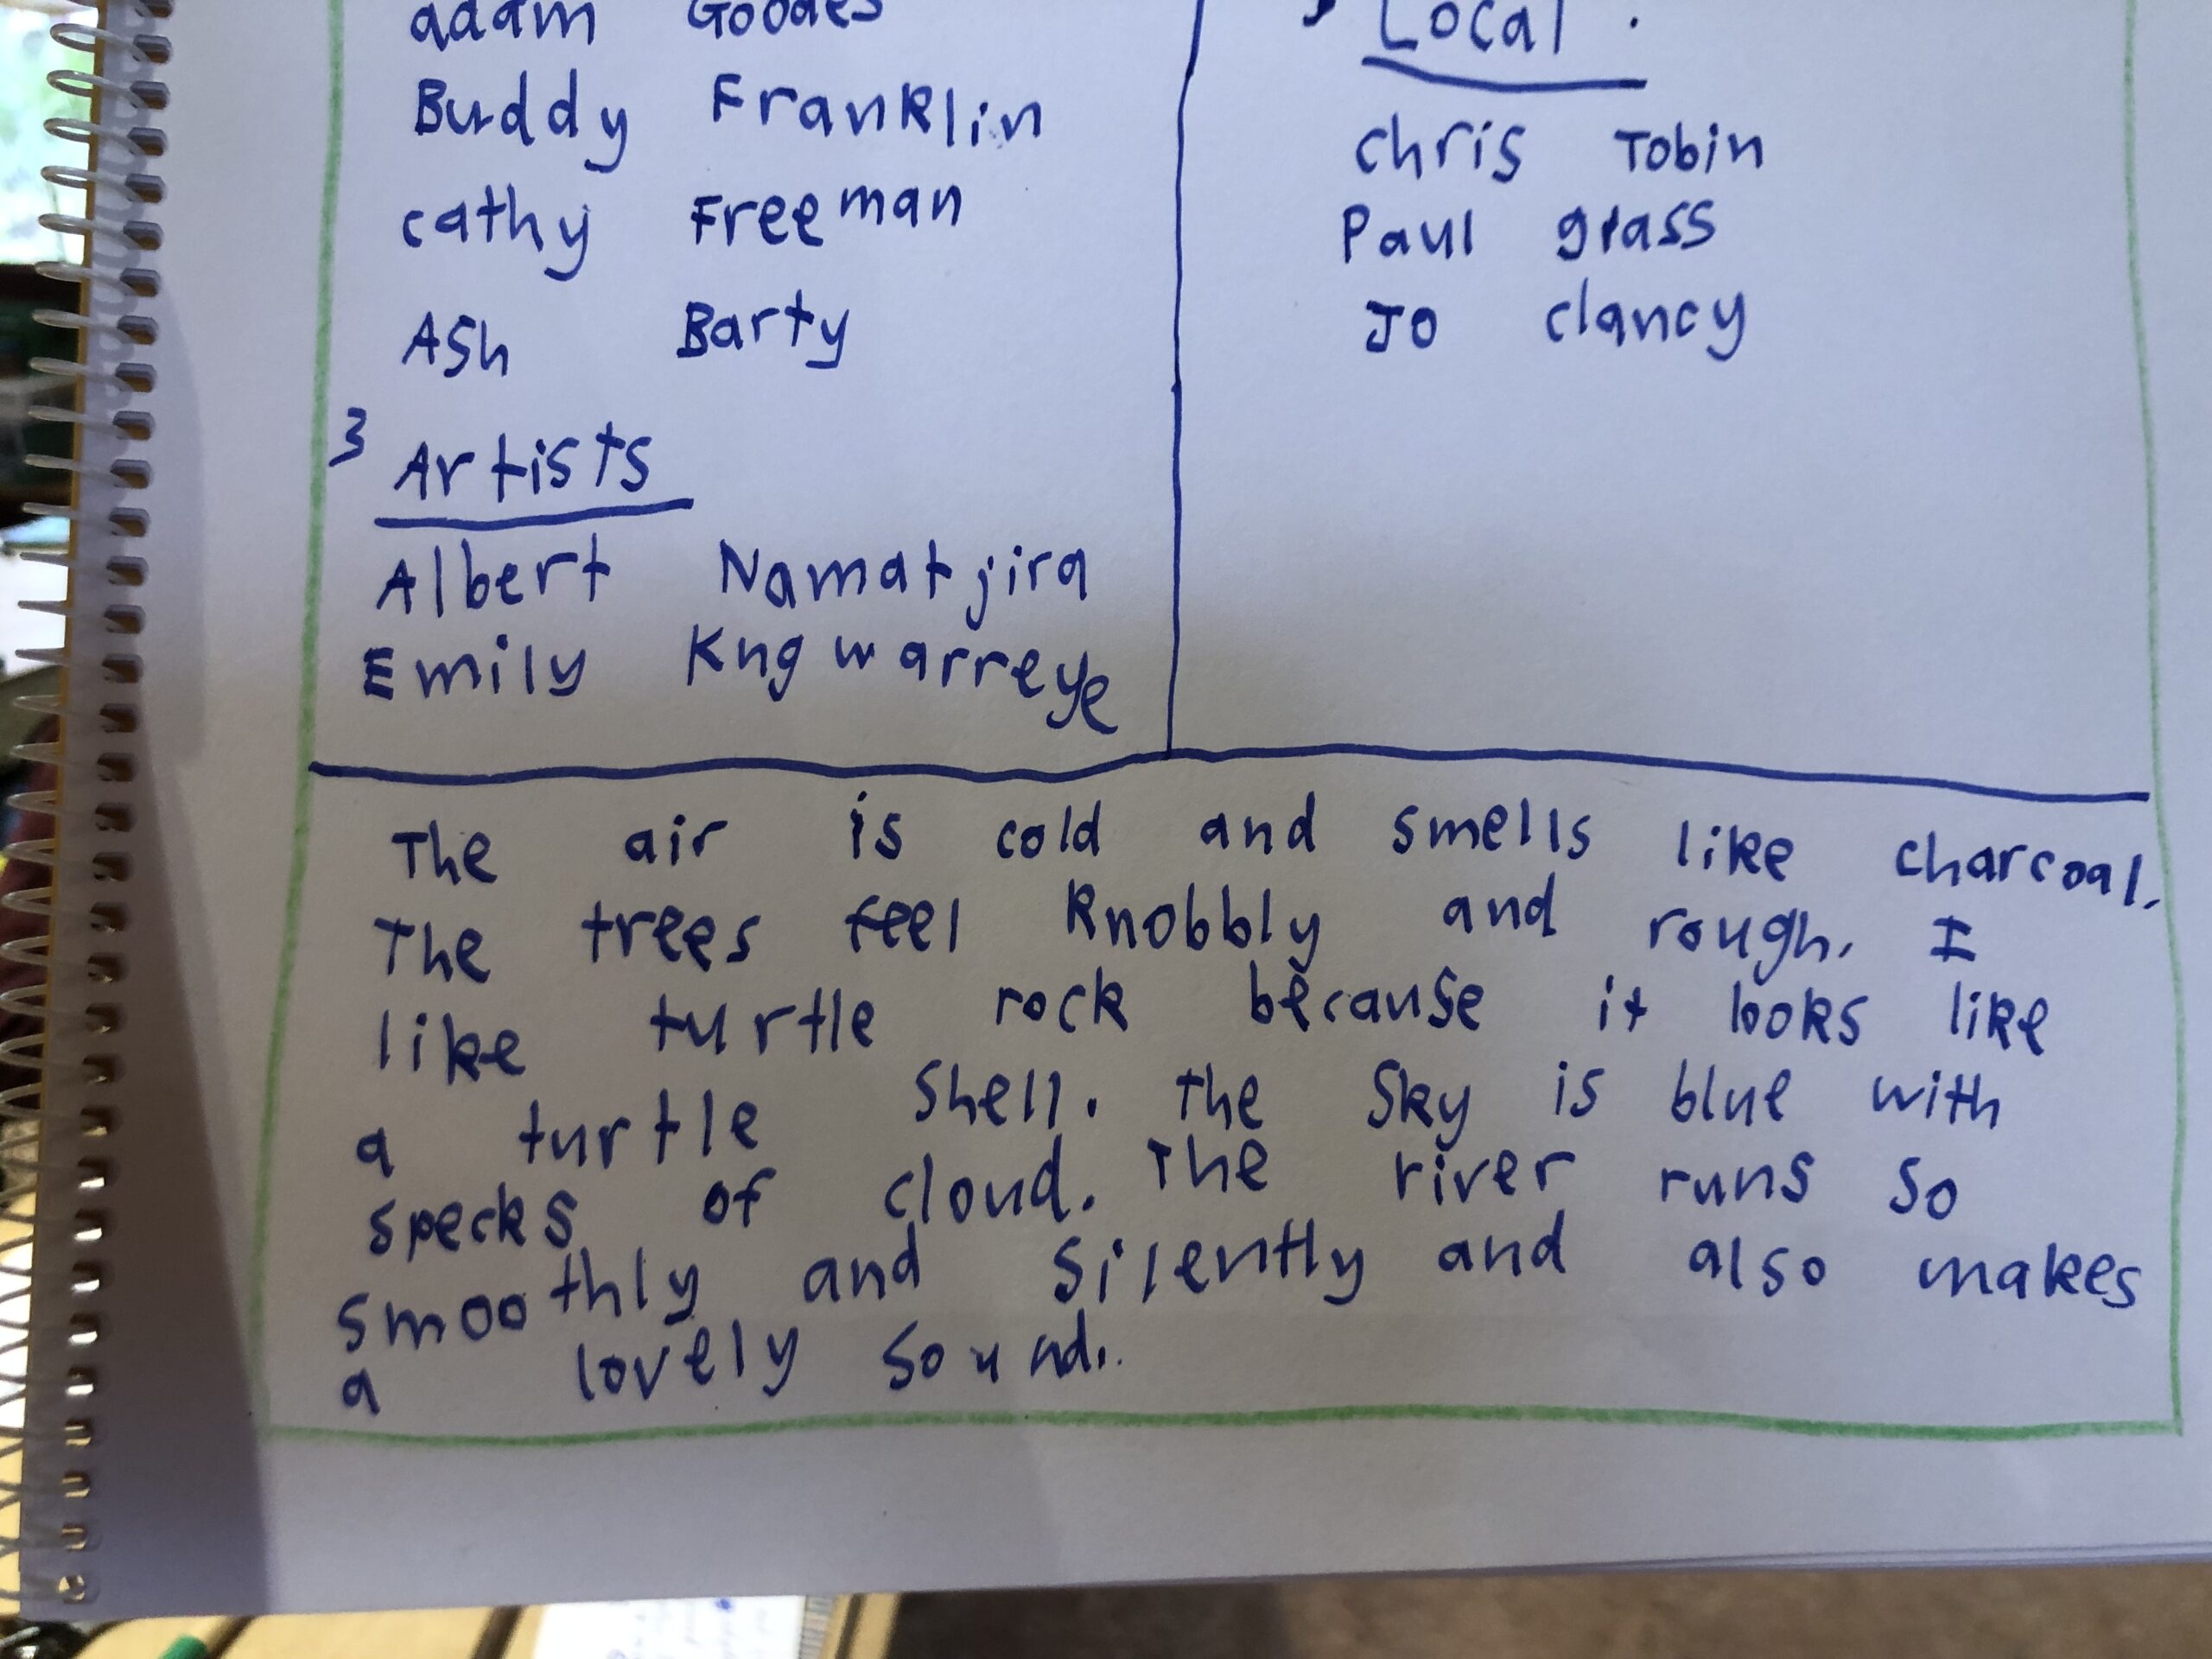 adam Goodes
Buddy Franklin
cathy Freeman
Ash Barty
3 Artists
Albert Namatjira
Emily Kngwarreye
Local.
chris Tobin
Paul glass
Jo clancy
The air is cold and smells like charcoal.
The trees feel knobbly and rough. I
like turtle rock because it looks like
a turtle shell. The sky is blue with
specks of cloud. The river runs so
smoothly and silently and also makes
a lovely sound.